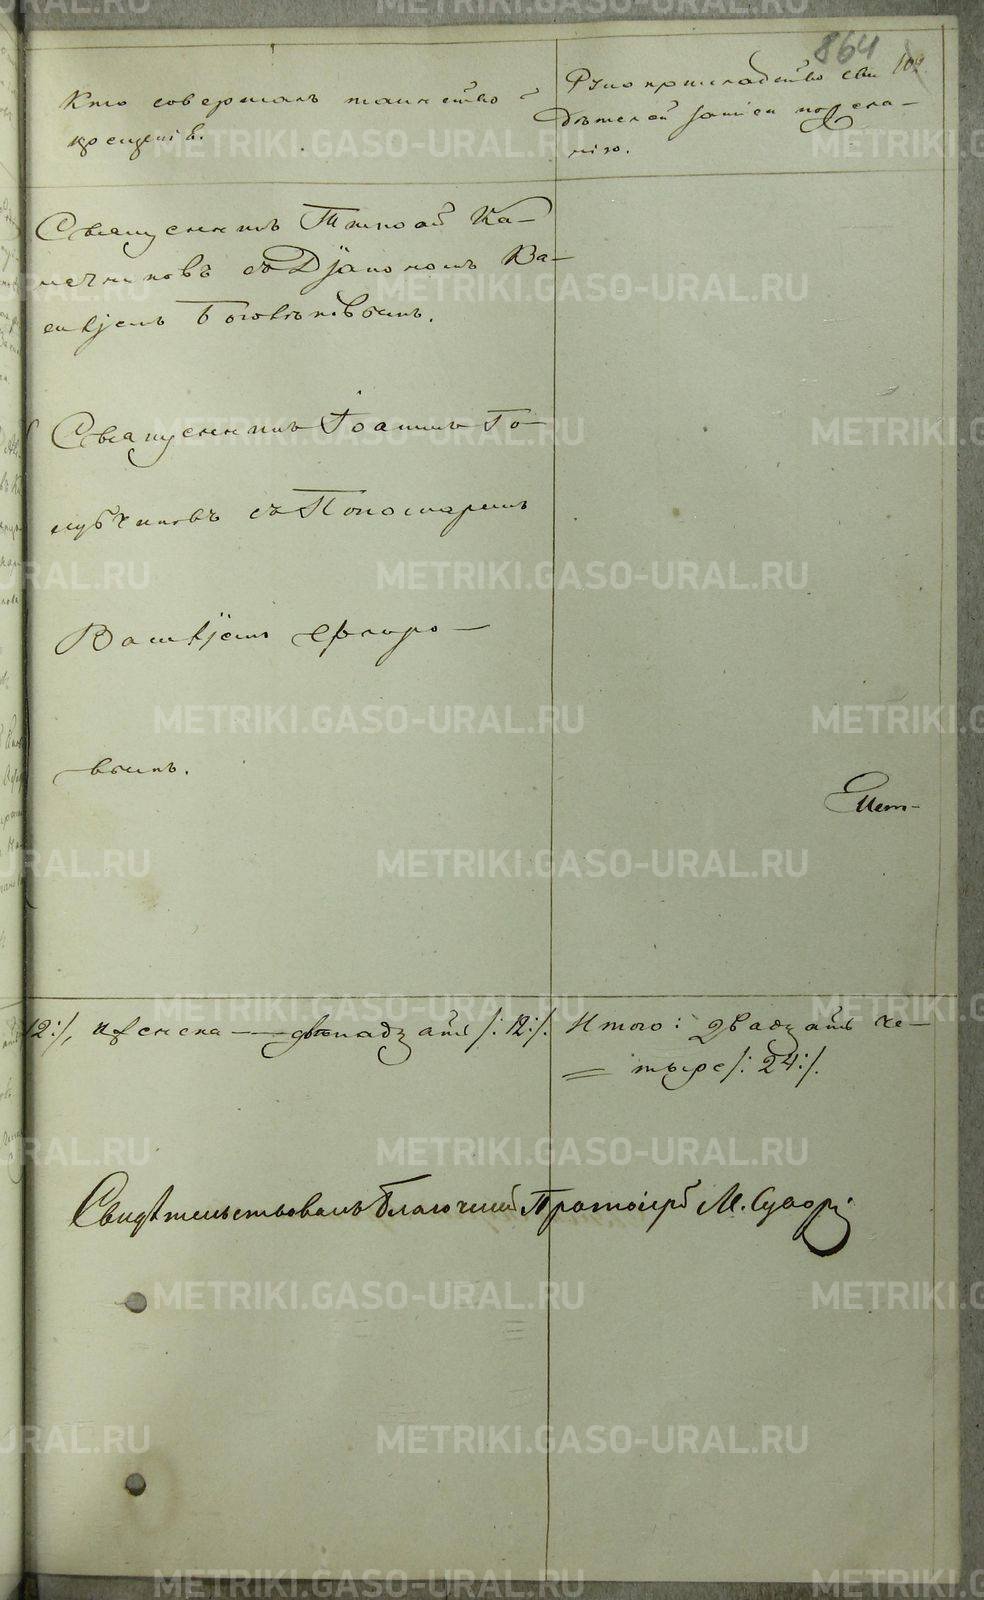 864
104
Кто совершалъ таинство
крещенія.
Рукоприкладство сви
дѣтелей записи по жела-
нію.
Священникъ Тимоѳей Ка-
мечниковъ съ Діакономъ Ва-
силіемъ Боголѣповымъ.
Священникъ Іоаннъ Го-
лубчиковъ съ Пономаремъ
Василіемъ Флоро-
вымъ.
12:/, женска — двѣнадцать /:12:/. Итого: двадцать че-
тыре /:24:/.
Свидѣтельствовалъ Благочинный Протоіерей М.
METRIKI.GASO-URAL.RU